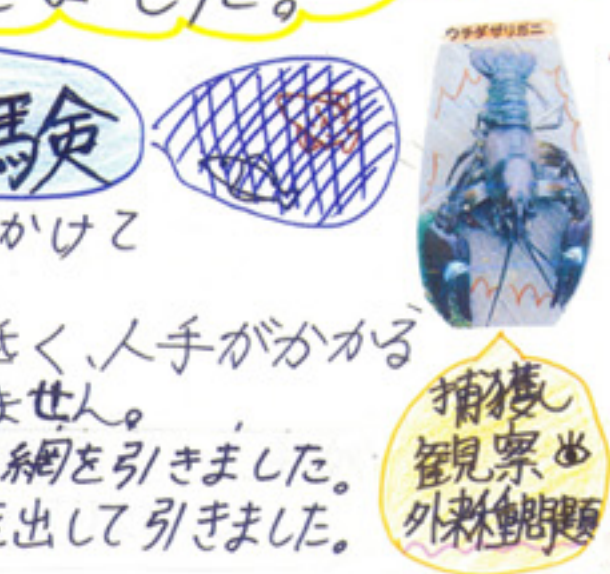 ました。
ウチダザリガニ
験
かけて
きく、人手がかかる
ません。
網を引きました。
出して引きました。
捕獲し
観察
外来種問題